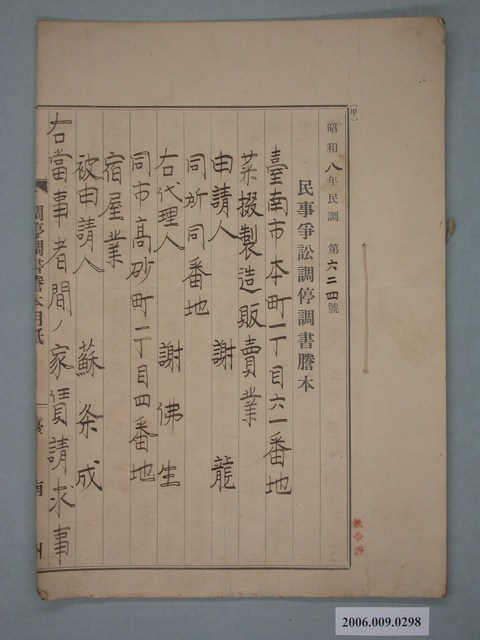 (甲)
昭和八年民調 第六二四號
民事爭訟調停調書謄本
臺南市本町一丁目六一番地
菓掇製造販賣業
申請人 謝龍
同所同番地
右代理人 謝佛生
同市高砂町一丁目四番地
宿屋業
被申請人 蘇条成
右當事者間ノ家賃請求事
調停調書謄本用紙
臺南州
2006.009.0298